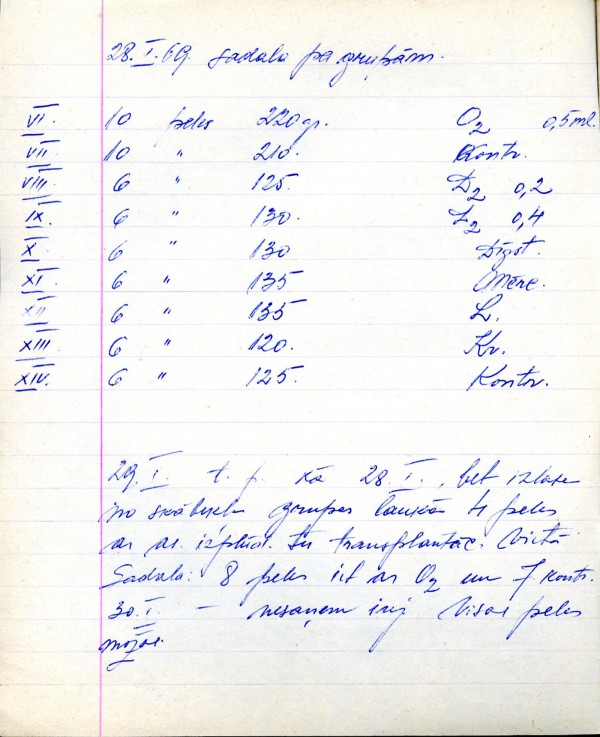 28.I.69. sadala pa grupām.
VI. 10 peles 220 gr. O₂ 0,5 ml.
VII. 10 " 210. Kontr.
VIII. 6 " 125. D₂ 0,2
IX. 6 " 130. L₂ 0,4
X. 6 " 130 Dīgst.
XI. 6 " 135 Mēre.
XII 6 " 135 L.
XIII. 6 " 120. Kv.
XIV. 6 " 125. Kontr.
29.I. t. p. kā 28.I., bet izlase
no skābekļa grupas laukā 4 peles
ar transplantāc. vietā
Sadala: 8 peles iet ar O₂ un 7. kontr.
30.I. – nesaņem inj visas peles
mazās.